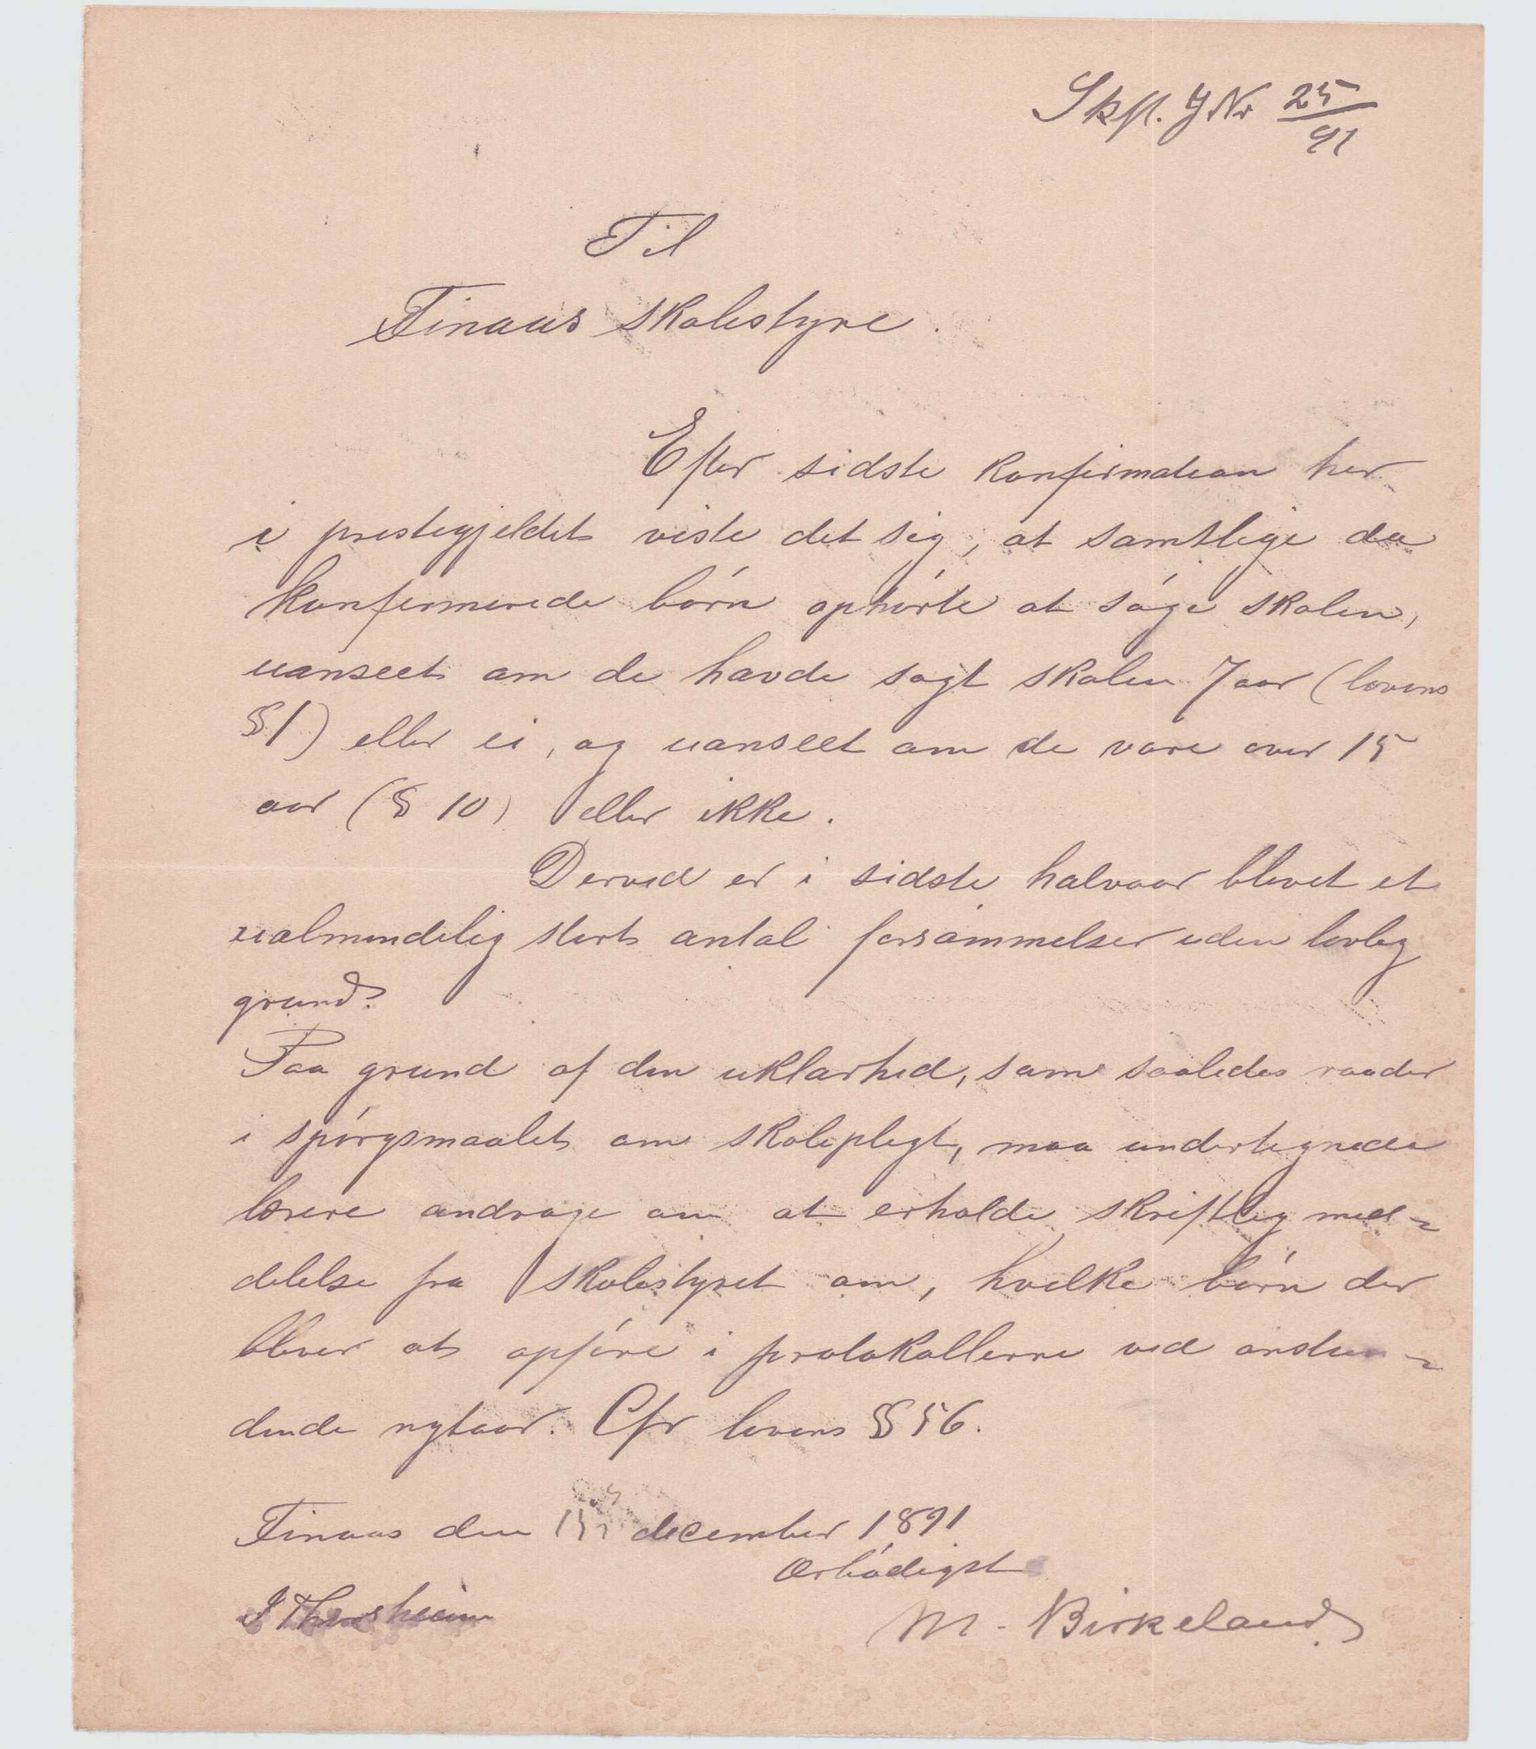 Skpl. J Nr 25/91
Til
Finaas skolestyre.
Efter sidste konfirmation her
i prestegjeldet viste det sig, at samtlige da
konfirmerede börn ophörte at söge skolen,
uanseet om de havde sögt skolen 7 aar (lovens
§ 1) eller ei, og uanseet om de vare over 15
aar (§ 10) eller ikke.
Derved er i sidste halvaar blevet et
ualmindelig stort antal forsömmelser uden lovlig
grund.
Paa grund af den uklarhed, som saaledes raader
i spörgsmaalet om skolepligt, maa undertegnede
lærere andrage om at erholde skriftlig med-
delelse fra skolestyret om, hvilke börn der
bliver at opföre i protokollerne ved anstun-
dende nytaar. Cfr lovens § 56.
Finaas den december 1891
Ærbödigst
M. Birkeland